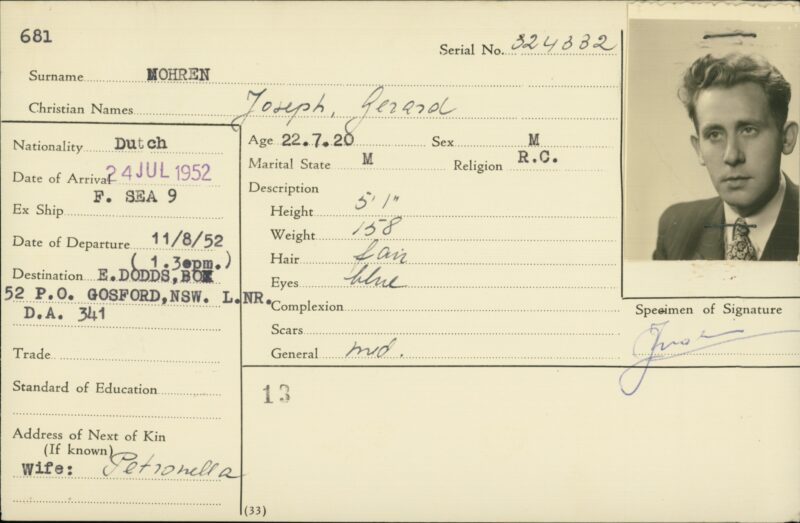 681
Serial No. 324332
Surname MOHREN
Christian Names Joseph, Gerard
Nationality Dutch
Date of Arrival 24 JUL 1952
Ex Ship F. SEA 9
Date of Departure 11/8/52
( 1.30pm.)
Destination E.DODDS,BOX
52 P.O. GOSFORD,NSW. L.NR.
D.A. 341
Trade
Standard of Education
Address of Next of Kin
(If known)
Wife: Petronella
Age 22.7.20 Sex M
Marital State M Religion R.C.
Description
Height 5'1"
Weight 158
Hair fair
Eyes blue
Complexion
Scars
General med.
13
(33)
Specimen of Signature